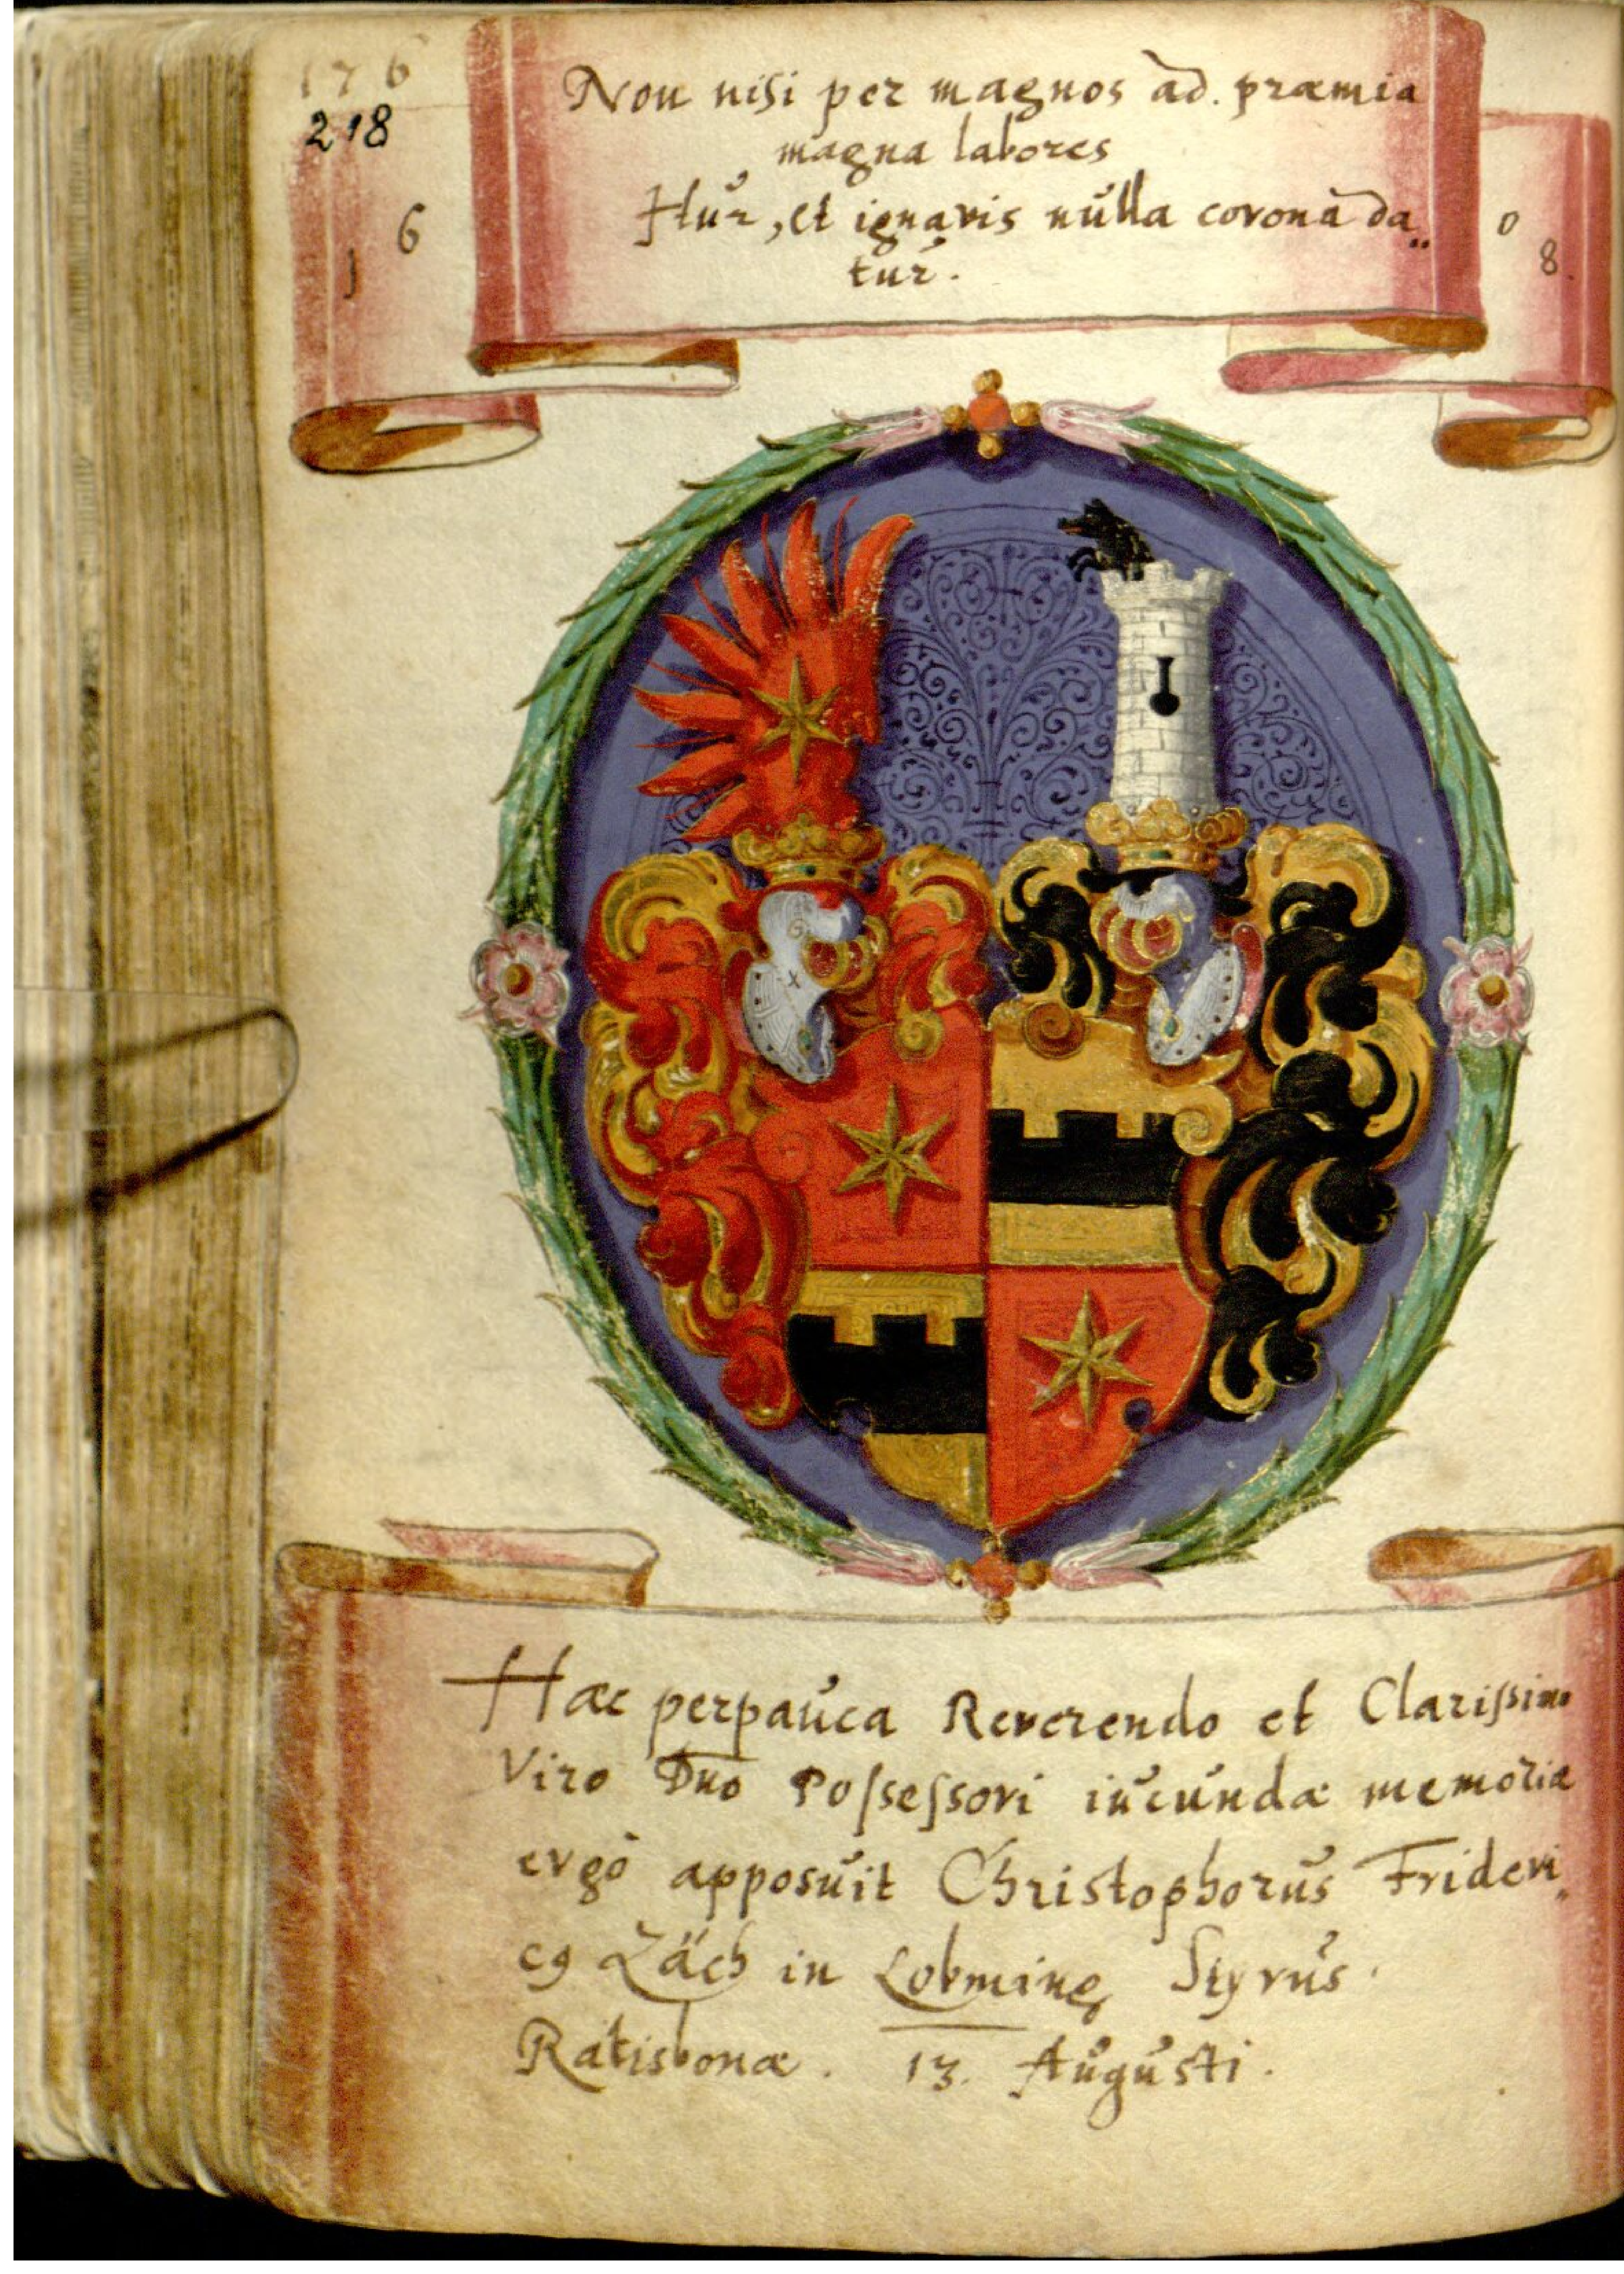 176
218
Non nisi per magnos ad. præmia
magna labores
Itur, et ignavis nulla corona da„
tur.
1 6 0 8.
Hæc perpauca Reverendo et Clarissimo
Viro Dno Possessori iucundæ memoriæ
ergò apposuit Christophorus Frideri„
cꝰ Zäch in Lobming Styrus
Ratisbonæ. 13. Augusti.